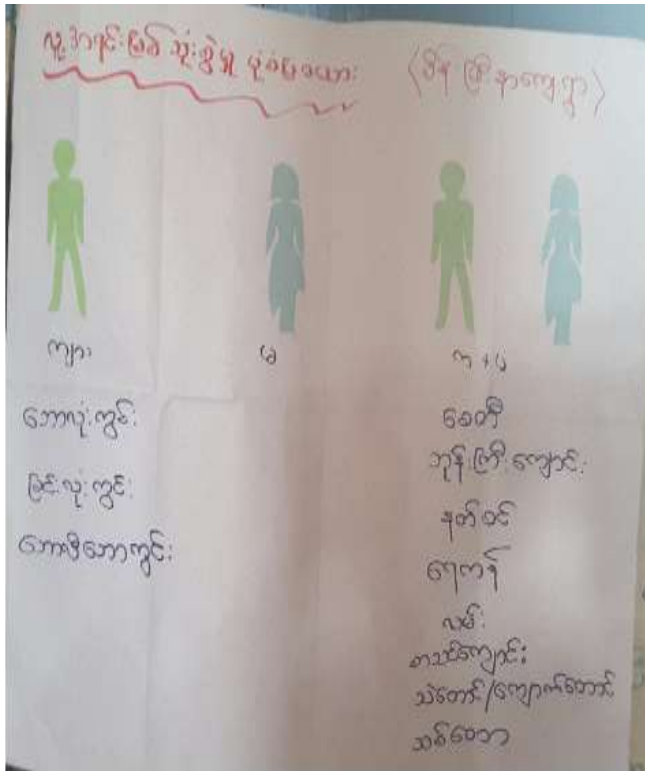 လူ့အရင်းမြစ် သုံးစွဲမှု ပုံစံမှုဇယား (ဖိန် ကြီး နာကျေးရွာ)
ကျား
မ
က + မ
ဘောလုံးကွင်း
ခြင်းလုံးကွင်း
ဘော်လီဘောကွင်း
စေတီ
ဘုန်းကြီးကျောင်း
နတ်စင်
ရေကန်
လမ်း
စာသင်ကျောင်း
သဲတောင်/ကျောက်တောင်
သစ်တော